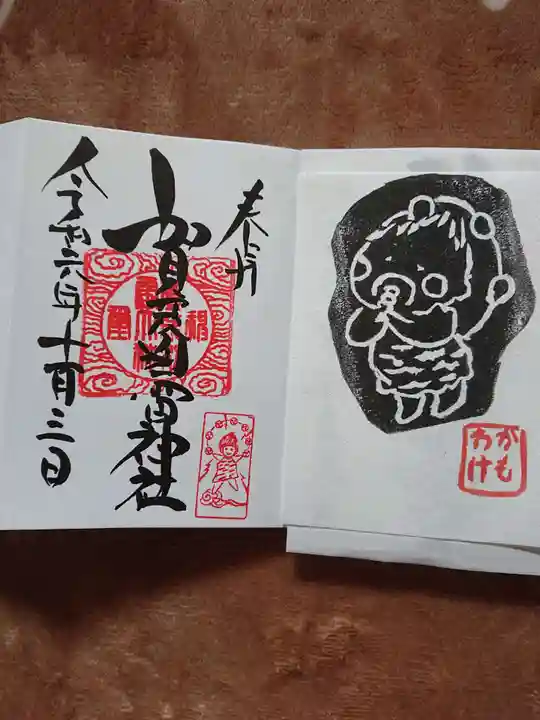 がも
わけ
奉拝
賀茂別雷神社
令和六年十月三日